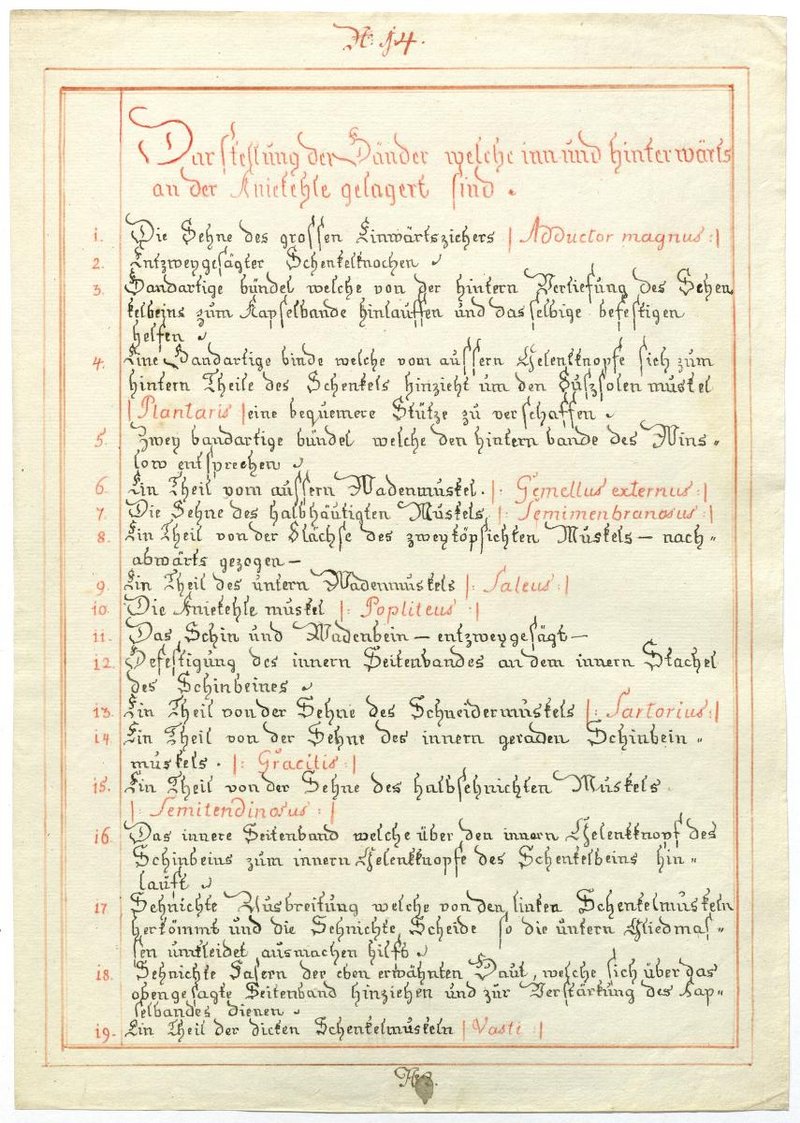 N: 14.
Darstellung der Bänder welche inn und hinterwärts
an der Kniekehle gelagert sind.
1. Die Sehne des grossen Einwärtsziehers |Adductor magnus:|
2. Entzweygesägter Schenkelknochen
3. Bandartige bündel welche von der hintern Vertiefung des Schen
kelbeins zum Kapselbande hinlauffen und das selbige befestigen
helfen
4. Eine Bandartige binde welche vom aussern Gelenkknopfe sich zum
hintern Theile des Schenkels hinzieht um den Fuszsolen muskel
|Plantaris |eine bequemere Stütze zu verschaffen
5. Zwey bandartige bündel welche den hintern bande des Wins=
low entsprechen
6. Ein Theil vom aussern Wadenmuskel. |: Gemellus externus:|
7. Die Sehne des halbhäutigten Muskels, |: Semimenbranosus:|
8. Ein Theil von der Flächse des zweyköpfichten Muskels — nach=
abwärts gezogen —
9. Ein Theil des untern Wadenmuskels |: Saleus:|
10. Die Kniekehle muskel |: Popliteus :|
11. Das Schin und Wadenbein — entzweygesägt —
12. Befestigung des innern Seitenbandes an dem innern Stachel
des Schinbeines
13. Ein Theil von der Sehne des Schneidermuskels |: Sartorius:|
14 Ein Theil von der Sehne des innern geraden Schinbein=
muskels. |: Gracilis:|
15. Ein Theil von der Sehne des halbsehnichten Muskels
|: Semitendinosus :|
16 Das innere Seitenband welche über den innern Gelenkknopf des
Schinbeins zum innern Gelenkknopfe des Schenkelbeins hin=
lauft
17 Sehnichte Ausbreitung welche von den linken Schenkelmuskeln
herkömmt und die Sehnichte Scheide so die untern Gliedmas=
sen umkleidet ausmachen hilft
18. Sehnichte Fasern der eben erwähnten Haut, welche sich über das
obengesagte Seitenband hinziehen und zur Verstärkung des Kap=
selbandes dienen
19. Ein Theil der dicken Schenkelmuskeln |Vasti :|